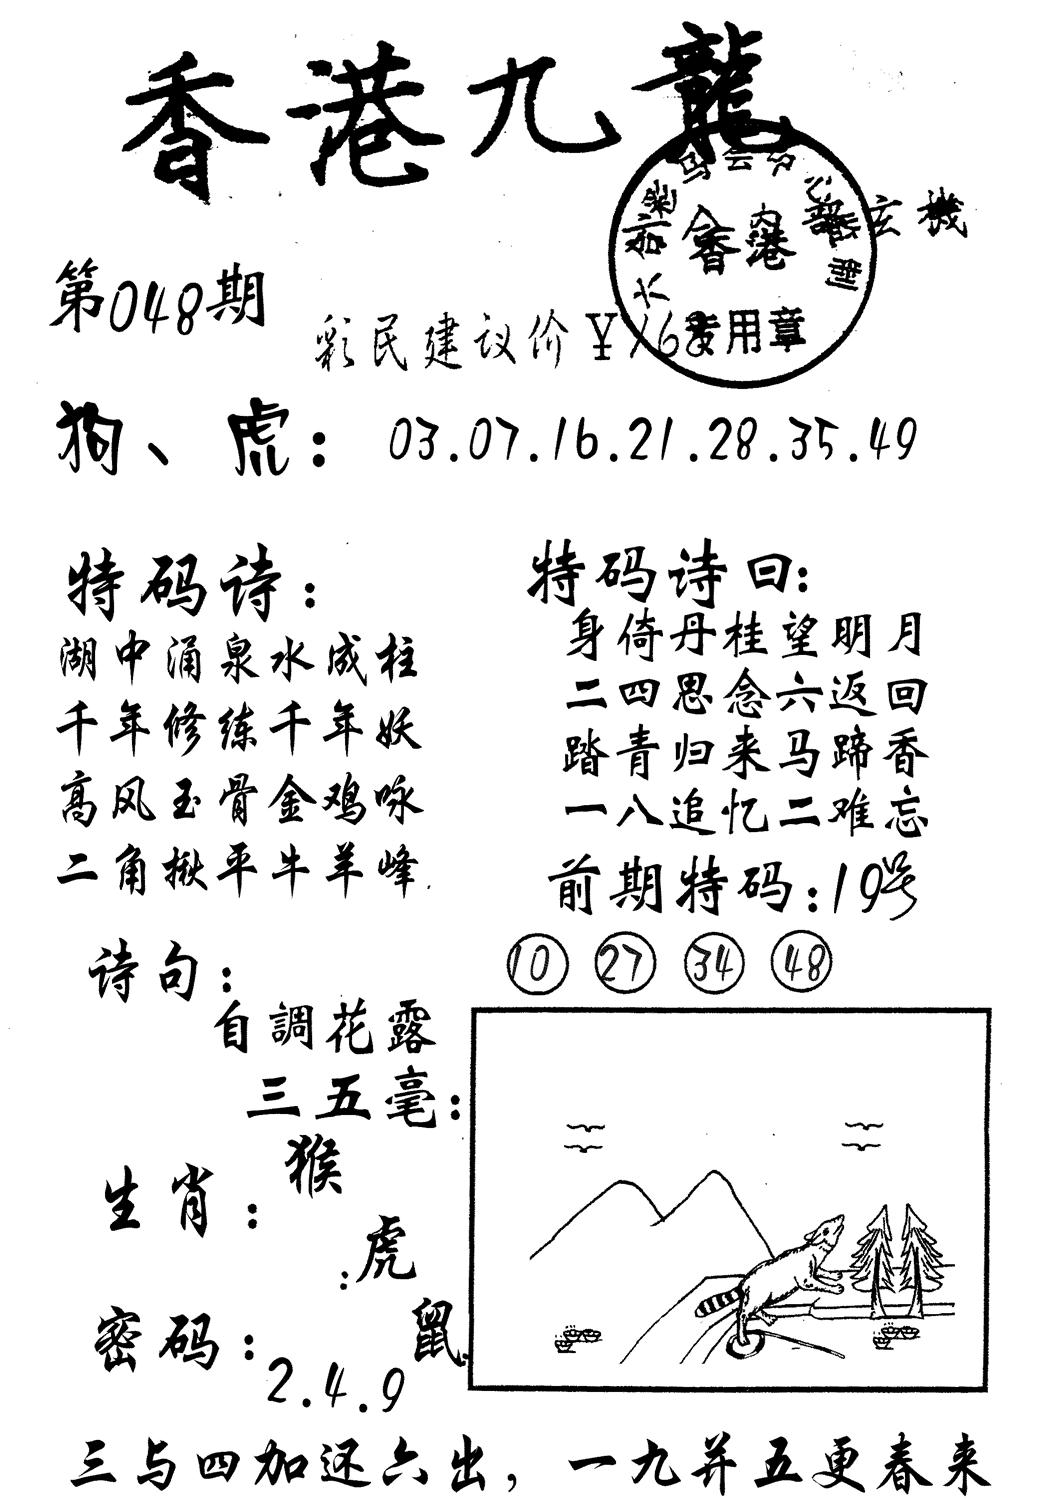 香港九龍
六合彩马会中心
内部玄機
香港
专用章
第048期
彩民建议价¥168
狗、虎：03.07.16.21.28.35.49
特码诗：
湖中涌泉水成柱
千年修练千年妖
高风玉骨金鸡咏
二角揪平牛羊峰
特码诗曰：
身倚丹桂望明月
二四思念六返回
踏青归来马蹄香
一八追忆二难忘
前期特码：19号
10 27 34 48
诗句：
自調花露
三五毫：
生肖：猴
：虎
鼠
密码：2.4.9
三与四加还六出，一九并五更春来